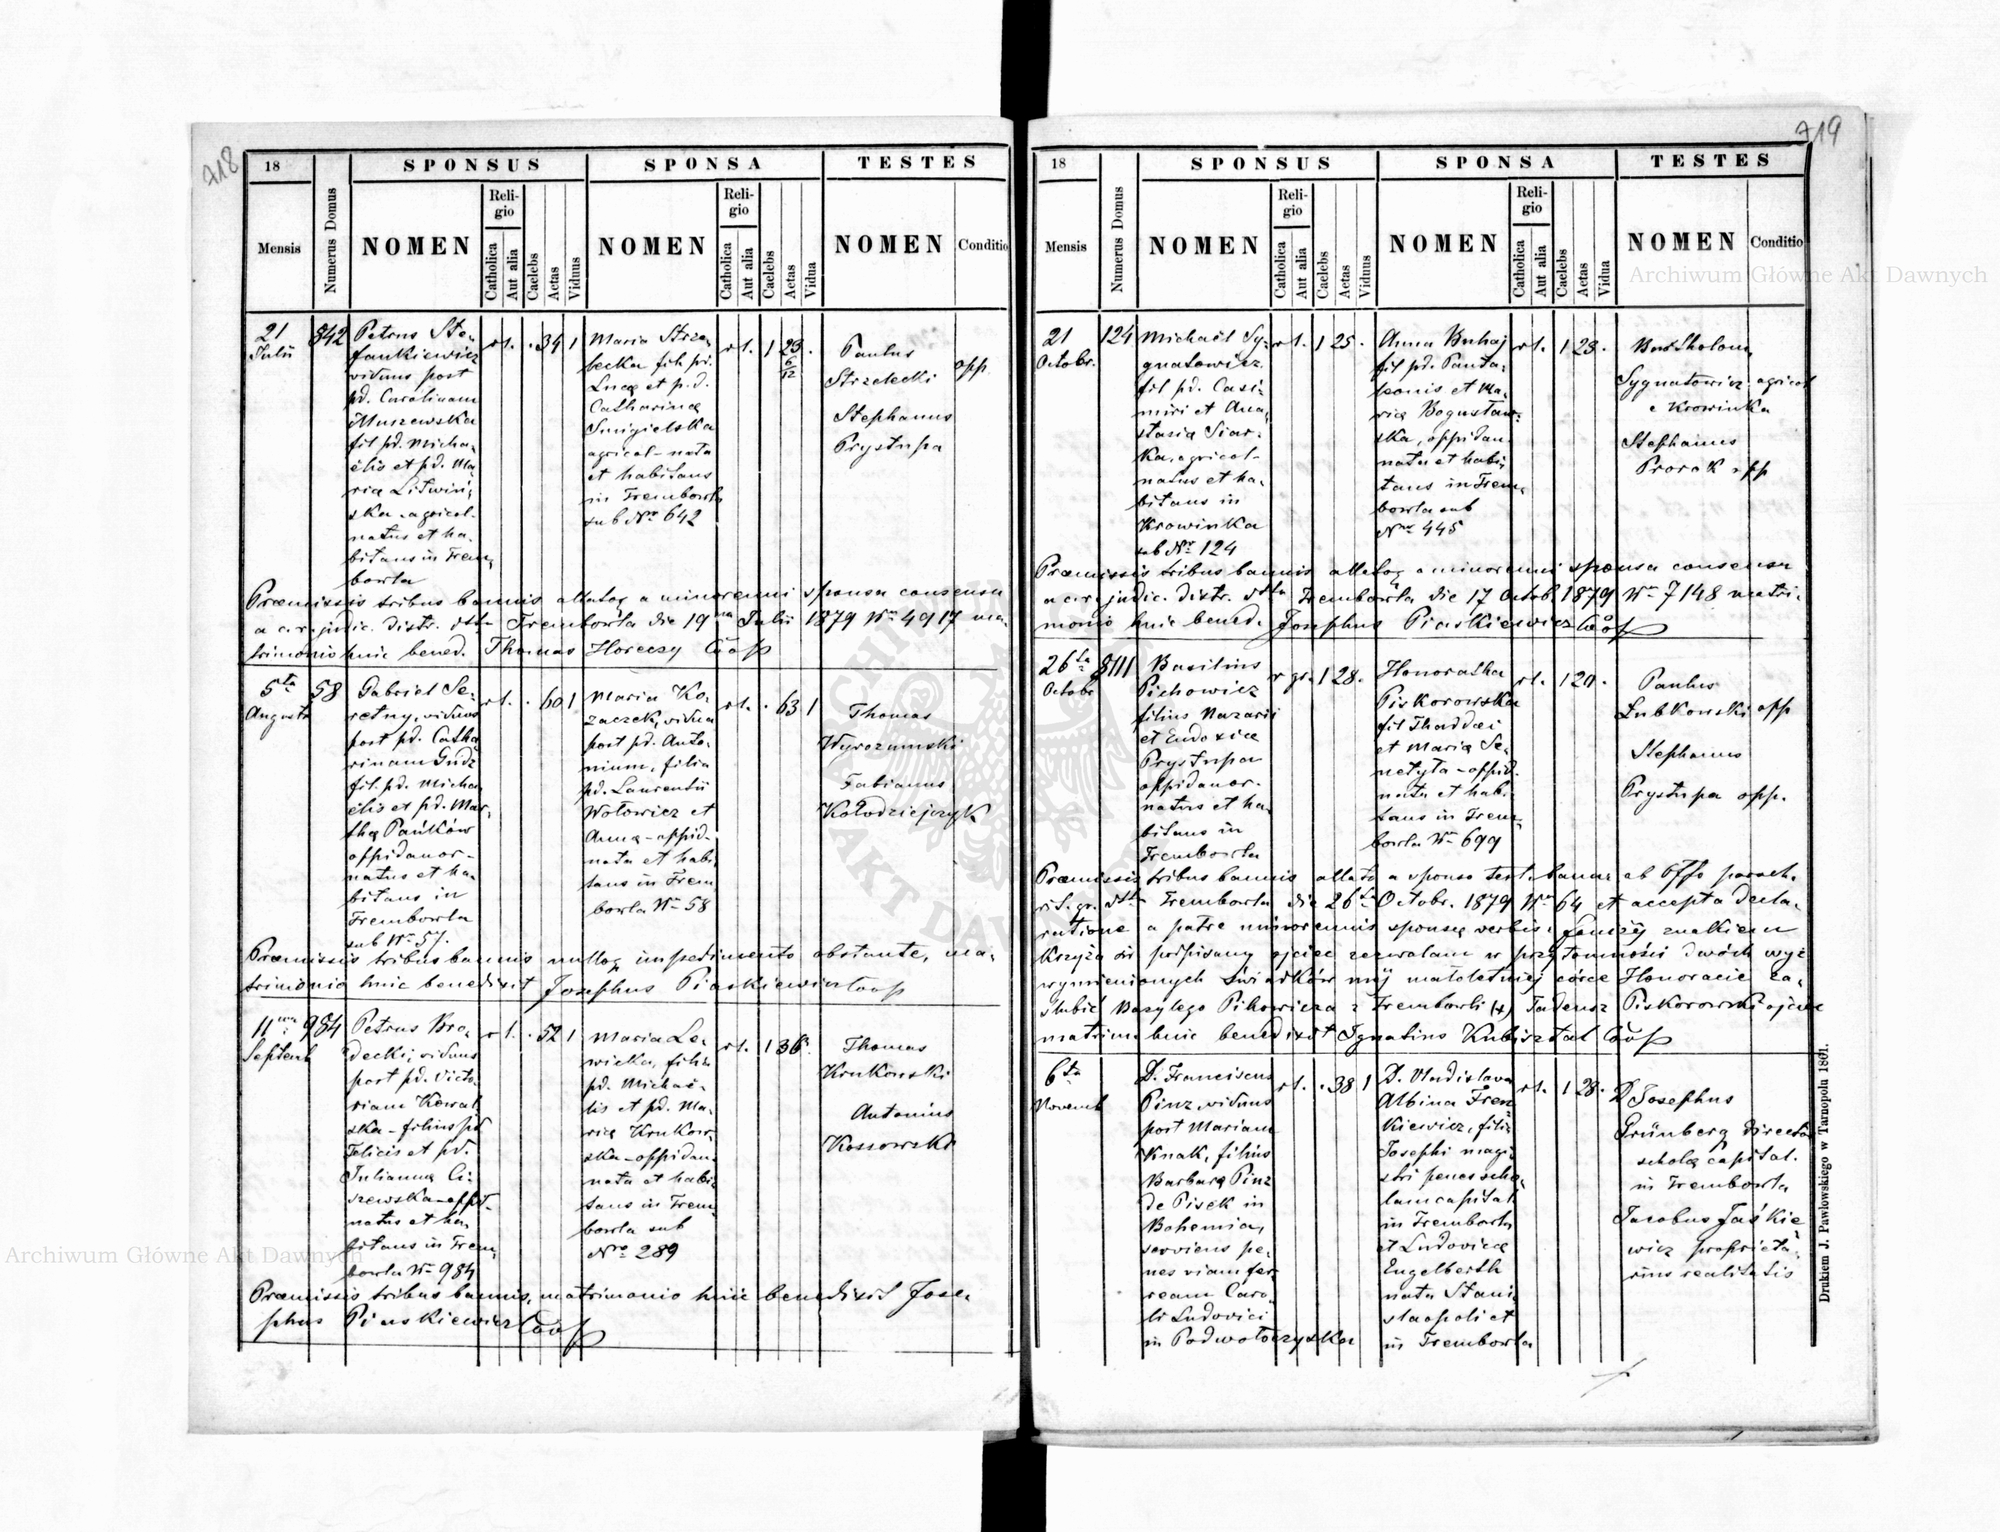 718
18
Mensis
Numerus Domus
SPONSUS
NOMEN
Reli-
gio
Catholica
Aut alia
Caelebs
Aetas
Viduus
SPONSA
NOMEN
Reli-
gio
Catholica
Aut alia
Caelebs
Aetas
Vidua
TESTES
NOMEN
Conditio
21
Julii
842
Petrus Ste-
fankiewicz
viduus post
pd. Carolinam
Muszewska
fil pd. Micha-
elis et pd. Ma-
ria Litwiń-
ska - agricol-
natus et ha-
bitans in Trem-
bowla
rl. . 34 1
Maria Strze-
lecka fil pd.
Lucę et p.d.
Catharinę
Smigielska
agricol - nata
et habitans
in Trembowla
sub Nro 642
rl. 1 23 6/12 .
Paulus
Strzelecki opp
Stephanus
Prystupa
Præmissis tribus bannis allatoq a minorenni sponsa consensu
a c.r. judic. distr. dtto Trembowla die 19na Julii 1879 Nro 4917 ma-
trimonio huic bened. Thomas Horeczy Coop
5ta
Augusti
58
Gabriel Se-
retny, viduus
post pd. Catha-
rinam Gudz
fil. pd. Micha-
elis et pd. Mar-
thę Pańków
oppidanor-
natus et ha-
bitans in
Trembowla
sub Nro 57.
rl. . 60 1
Maria Ko-
zaczek, vidua
post pd. Anto-
nium, filia
pd. Laurentii
Wołowicz et
Annę - oppid-
nata et habi-
tans in Trem-
bowla Nro 58
rl. . 63 1
Thomas
Wyrozumski
Fabianus
Kołodziejczyk
Præmissis tribus bannis nulloq impedimento obstante, ma-
trimonio huic benedixit Josephus Piaskiewicz Coop
11ma
Septemb
984
Petrus Bro-
decki, viduus
post pd. Victo-
riam Kowal-
ska - filius pd
Felicis et pd.
Julianna Ci-
szewska - oppid-
natus et ha-
bitans in Trem-
bowla Nro 984
rl. . 52 1
Maria Le-
wicka, filia
pd. Michae-
lis et pd. Ma-
rię Krukow-
ska - oppidan-
nata et habi-
tans in Trem-
bowla sub
Nro 289
rl. 1 36.
Thomas
Krukowski
Antonius
Kossowski
Præmissis tribus bannis, matrimonio huic benedixit Jose-
phus Piaskiewicz Coop
719
18
Mensis
Numerus Domus
SPONSUS
NOMEN
Reli-
gio
Catholica
Aut alia
Caelebs
Aetas
Viduus
SPONSA
NOMEN
Reli-
gio
Catholica
Aut alia
Caelebs
Aetas
Vidua
TESTES
NOMEN
Conditio
21
Octobr.
124
Michaël Sy-
gnatowicz
fil pd. Casi-
miri et Ana-
stasia Siar-
ka, agricol-
natus et ha-
bitans in
Krowinka
sub Nro 124
rl. 1 25 .
Anna Buhaj
fil pd. Panta-
leonis et Ma-
rię Bogusław-
ska, oppidan
nata et habi-
tans in Trem-
bowla sub
Nro 445
rl. 1 23 .
Bartholom
Sygnatowicz agricol
e Krowinka
Stephanus
Prorok opp
Præmissis tribus bannis allatoq a minorenni sponsa consensu
a c.r. judic. distr. dtto Trembowla die 17 Octob. 1879 Nro 7148 matri-
monio huic bened. Josephus Piaskiewicz Coop
26ta
Octobr
8111
Basilius
Pichowicz
filius Nazarii
et Eudoxiæ
Prystupa
oppidanor-
natus et ha-
bitans in
Trembowla
r gr. 1 28.
Honoratha
Piskorowska
fil Thaddæi
et Marię Se-
netyta - oppid.
nata et habi-
tans in Trem-
bowla Nro 699
rl. 1 20 .
Paulus
Lubkowski opp
Stephanus
Prystupa opp.
Præmissis tribus bannis allato a sponso test. bann. ab Offo paroch.
rit. gr. dtto Trembowla die 26ta Octobr. 1879 Nro 64 et accepta decla-
ratione a patre minorennis sponsę verbis: Poniżej znakiem
krzyża św podpisany ojciec zezwalam w przytomności dwóch wyż
wymienionych świadków mej małoletniej córce Honoracie za-
ślubić Bazylego Pihowicza z Trembowli (+) Tadeusz Piskorowski ojciec
matrim. huic benedixit Ignatius Kubisztal Coop
6ta
Novemb
D. Franciscus
Pinz, viduus
post Mariam
Knak, filius
Barbarę Pinz
de Pisek in
Bohemia,
serviens pe-
nes viam fer-
ream Caro-
li Ludovici
in Podwołoczyska
rl. . 38 1
D. Vladislava
Albina Fren-
kiewicz, filia
Josephi magi-
stri penes scho-
lam capital
in Trembowla
et Ludovicę
Engelberth
nata Stani-
slaopoli et
in Trembowla
rl. 1 28 .
D Josephus
Grünberg director
scholę capital.
in Trembowla
Jacobus Jaśkie-
wicz proprieta-
rius realitatis
Drukiem J. Pawłowskiego w Tarnopolu 1801.
Archiwum Główne Akt Dawnych
Archiwum Główne Akt Dawnych